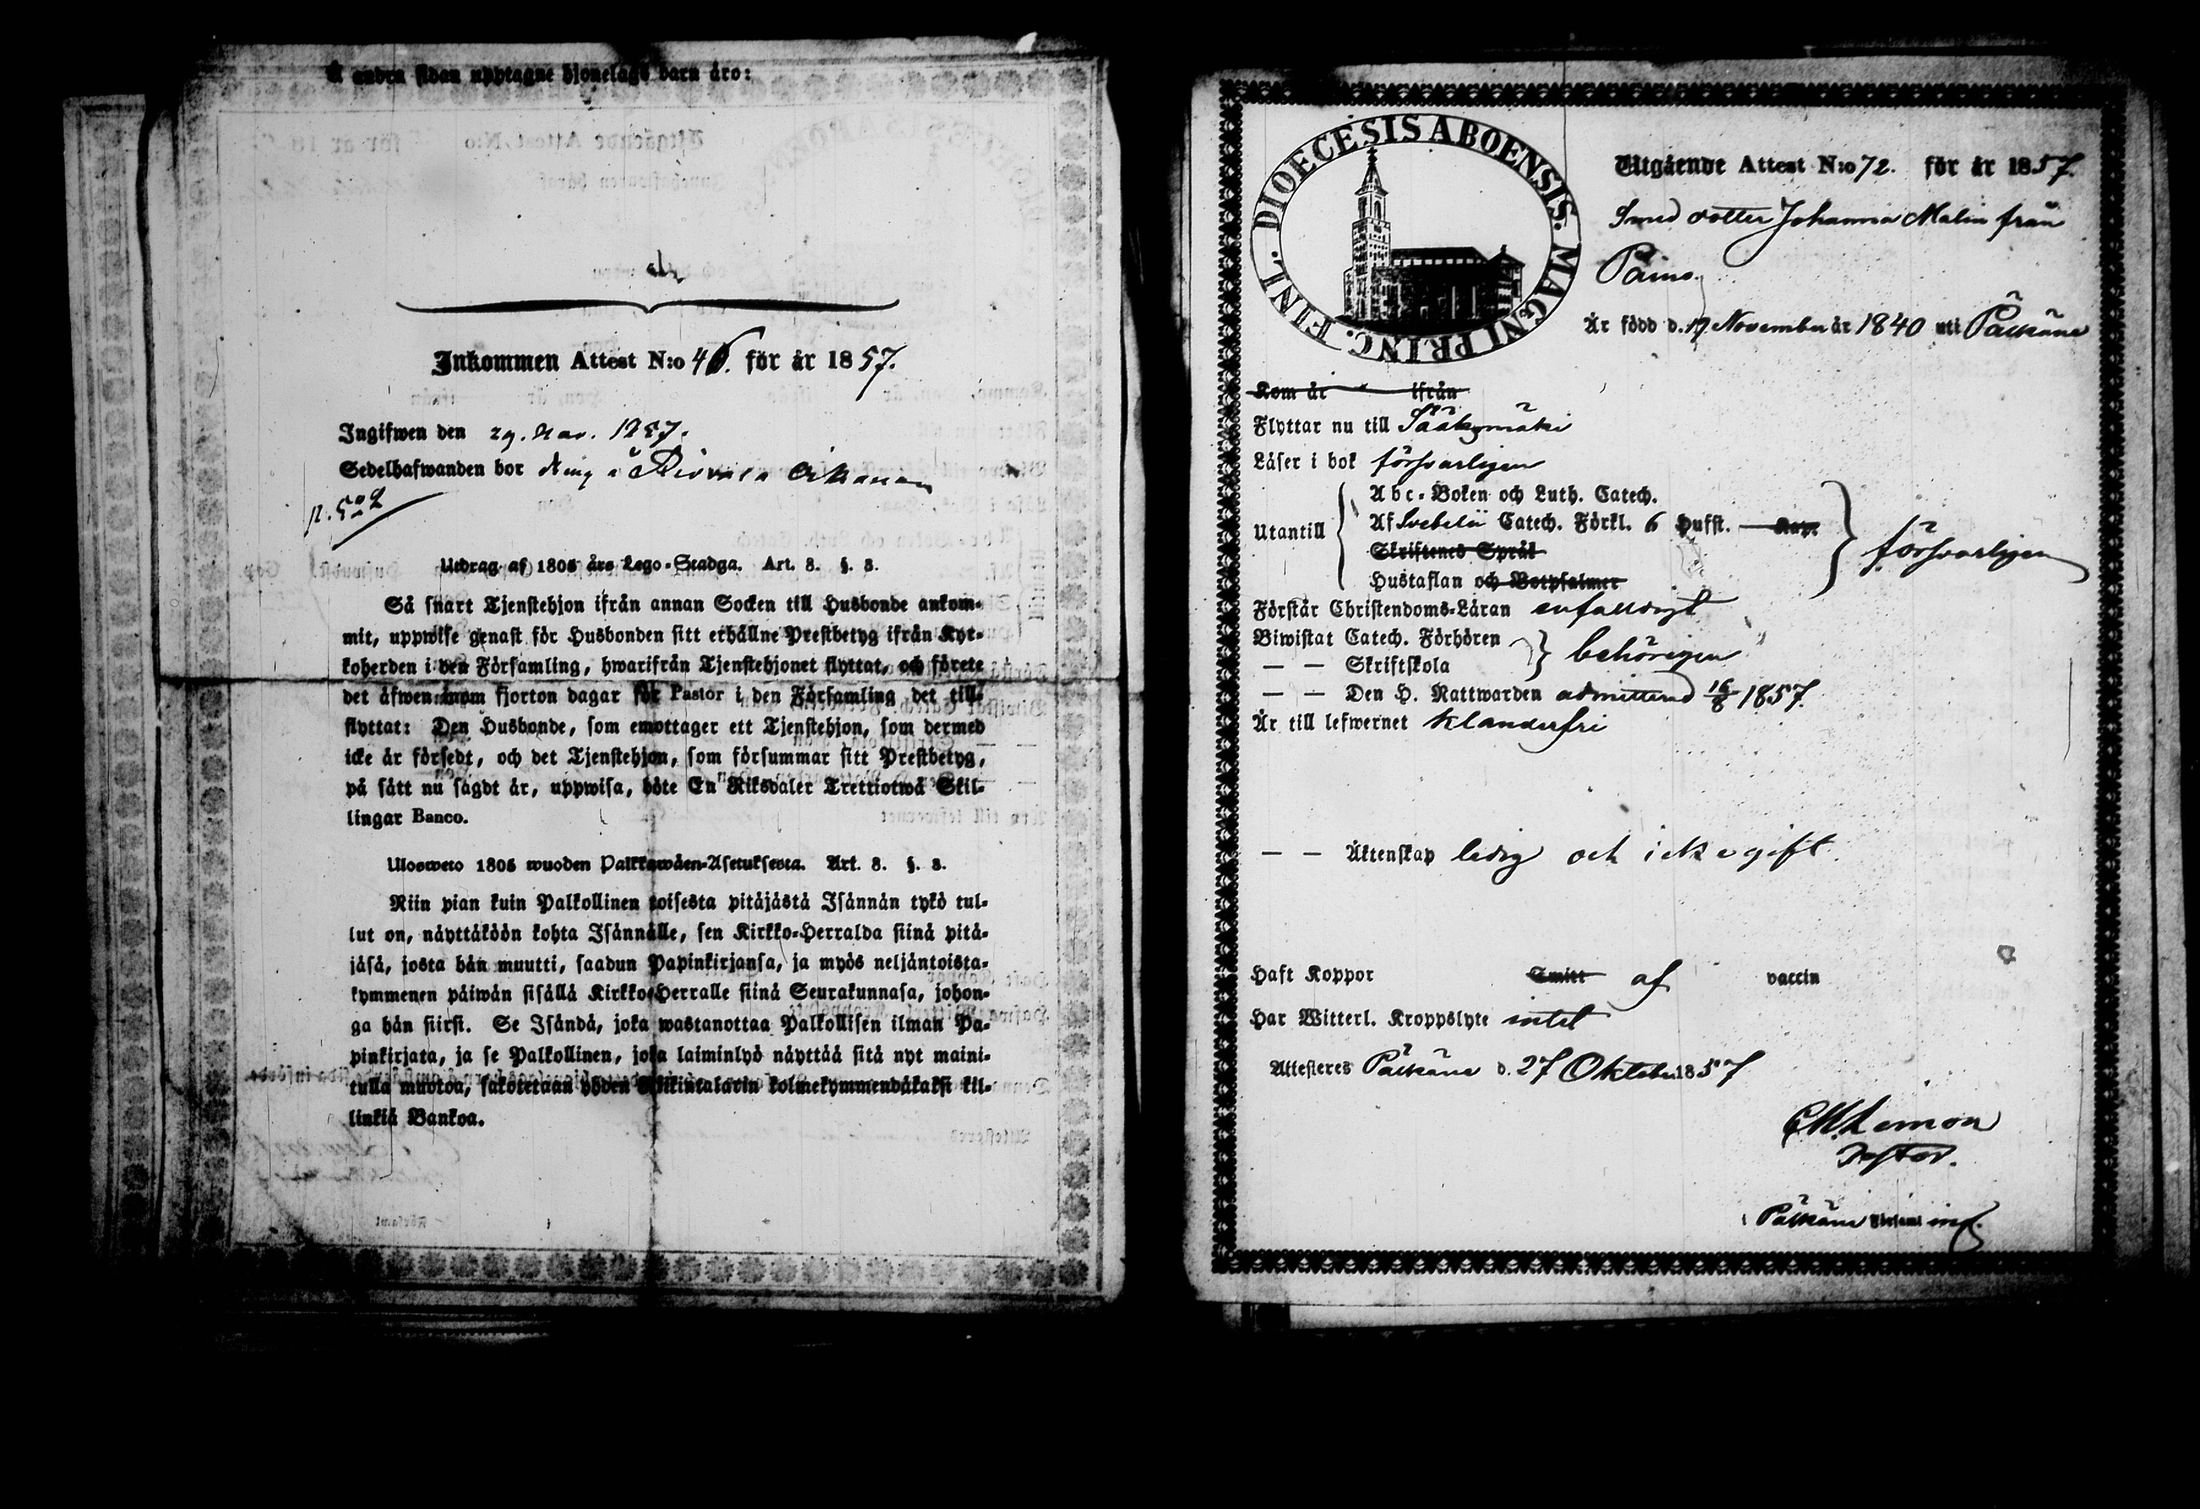 Å andra sidan upptagne hjonelags barn äro:
Inkommen Attest N:o 46. för år 1857.
Ingifwen den 29. Nov. 1857.
Sedelhafwanden bor
p. 502
Utdrag af 1805 års Lego-Stadga. Art. 8. §. 3.
Så snart Tjenstehjon ifrån annan Socken till Husbonde ankom-
mit, uppwise genast för Husbonden sitt erhållne Prestbetyg ifrån Kyr-
koherden i den Församling, hwarifrån Tjenstehjonet flyttat, och förete
det äfwen inom fjorton dagar för Pastor i den Församling det till-
flyttat: Den Husbonde, som emottager ett Tjenstehjon, som dermed
icke är försedt, och det Tjenstehjon, som försummar sitt Prestbetyg,
på sätt nu sagdt är, uppwisa, böte En Riksdaler Trettiotwå Skil-
lingar Banco.
Ulosweto 1805 wuoden Palkkawäen-Asetuksesta. Art. 8. §. 3.
Niin pian kuin Palkollinen toisesta pitäjästä Isännän tykö tul-
lut on, näyttäköön kohta Isännälle, sen Kirkko-Herralda siinä pitä-
jäsä, josta hän muutti, saadun Papinkirjansa, ja myös neljäntoista-
kymmenen päiwän sisällä Kirkko-Herralle siinä Seurakunnasa, johon-
ga hän siirsi. Se Isändä, joka wastanottaa Palkollisen ilman Pa-
pinkirjata, ja se Palkollinen, joka laiminlyö näyttää sitä nyt maini-
tulla muotoa, sakotetaan yhden Riikintalarin kolmekymmendäkaksi kil-
linkiä Bankoa.
DIOECESIS ABOENSIS. MAGNI PRINC. FINL.
Utgående Attest N:o 72. för år 1857.
Smed dotter Johanna Malin från
Är född d. 17 November år 1840 uti Pälkäne
Kom år ifrån
Flyttar nu till Sääksmäki
Läser i bok försvarligen
Abc-Boken och Luth. Catech.
Utantill Af Svebelii Catech. Förkl. 6 Hufst. Kap. försvarligen
Skriftenes Språk
Hustaflan och Botpsalmer
Förstår Christendoms-Läran enfaldigt
Biwistat Catech. Förhören behörigen
— — Skriftskola
— — Den H. Nattwarden admitterad 16/8 1857.
Är till lefwernet klanderfri
— — Äktenskap ledig och icke gift
Haft Koppor Smitt af vaccin
Har Witterl. Kroppslyte intet
Attesteras Pälkäne d. 27 Oktober 1857
Pastor.
i Pälkäne Församling.